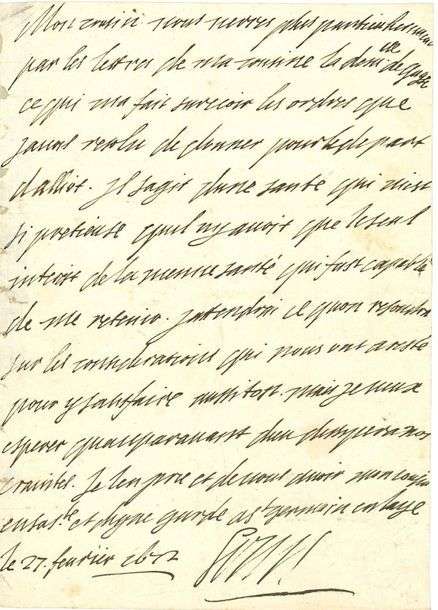 Mon cousin vous verres plus particulierement
par les lettres de ma cousine la dem.lle de Guyse
ce qui ma fait surceoir les ordres que
javois resolu de donner pour le depart
dalliot. Il sagit dune santé qui mest
si pretieuse quil ny avoit que le seul
interest de la mesme santé qui fust capable
de me retenir. jattendrai ce quon respondra
sur les considerations qui nous ont aresté
pour y satisfaire aussitost. mais je veux
esperer quauparavant dieu dissipera nos
craintes. Je len prie et de vous avoir mon cousin
en sa s.te et digne garde a S.t germain en laye
le 27. fevrier 1672
Louis